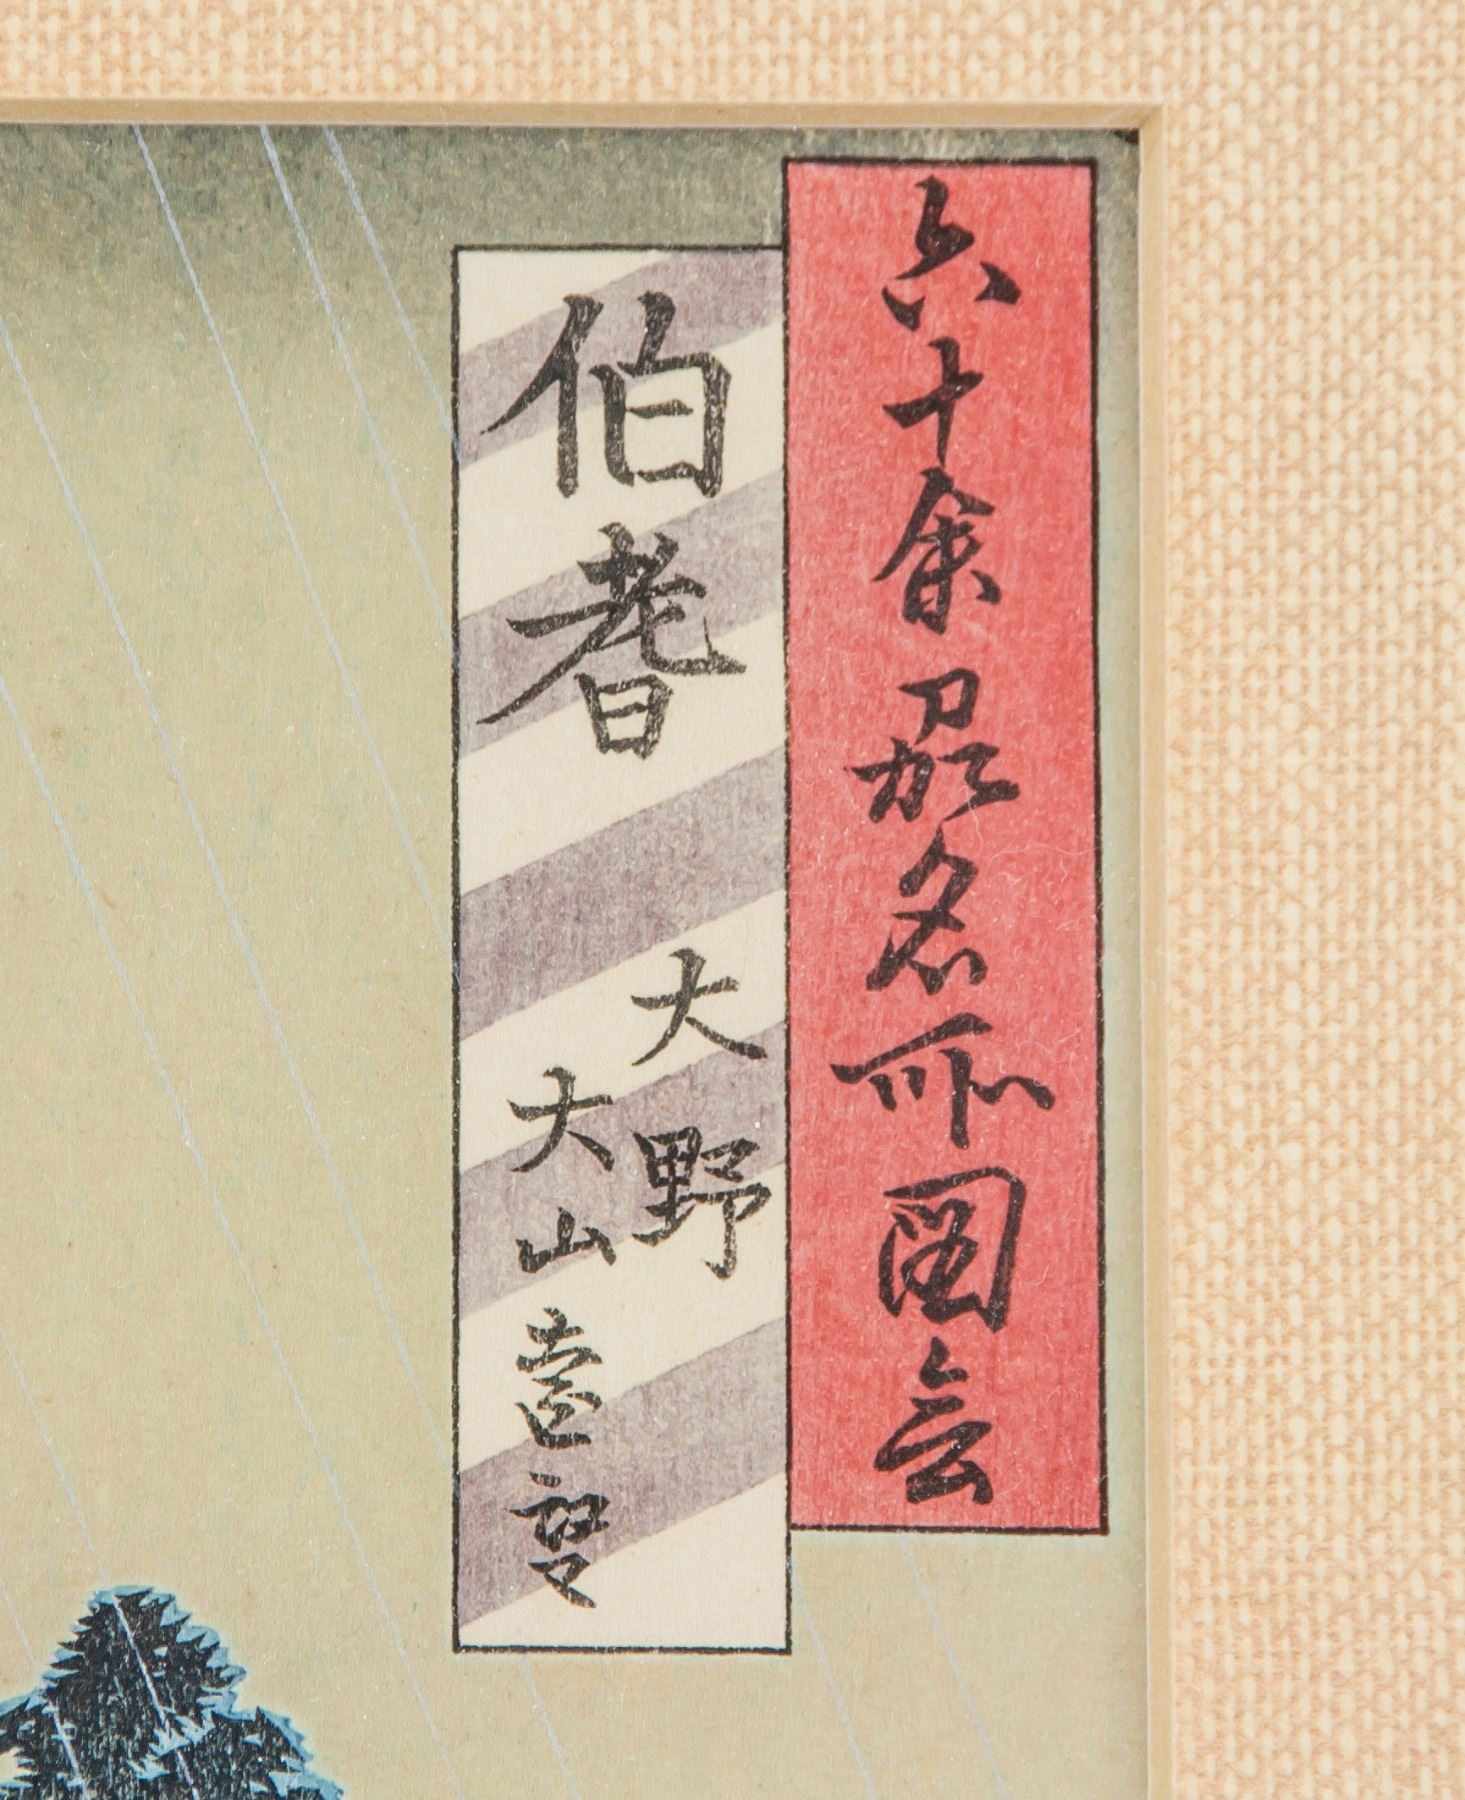 六十余刕名所圖会
伯耆
大野
大山遠望